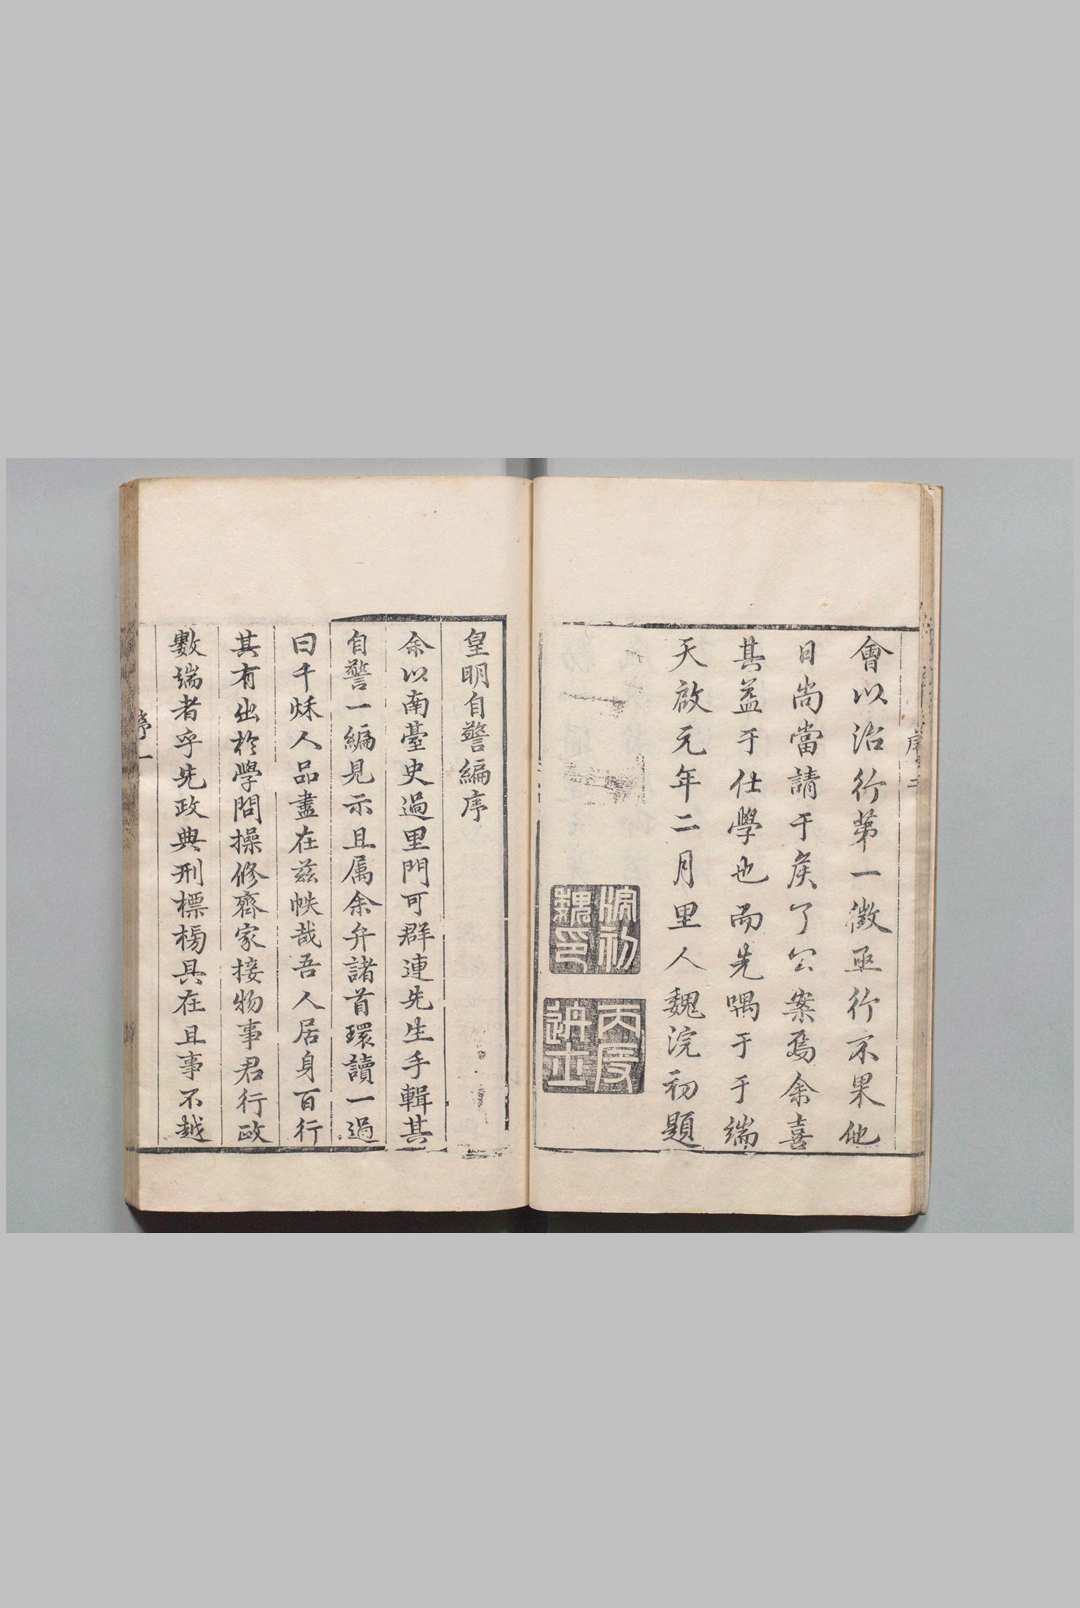 會以治行第一徵亟行不果他
日尚當請于矦了公案焉余喜
其益于仕學也而先喁于于端
天啟元年二月里人魏浣初題
浣初
魏印
丙辰
進士
皇明自警編序
余以南臺史過里門可群連先生手輯其
自警一編見示且属余弁諸首環讀一過
曰千秌人品盡在茲帙哉吾人居身百行
其有出於學問操修齊家接物事君行政
數端者乎先政典刑標榜具在且事不越
序一